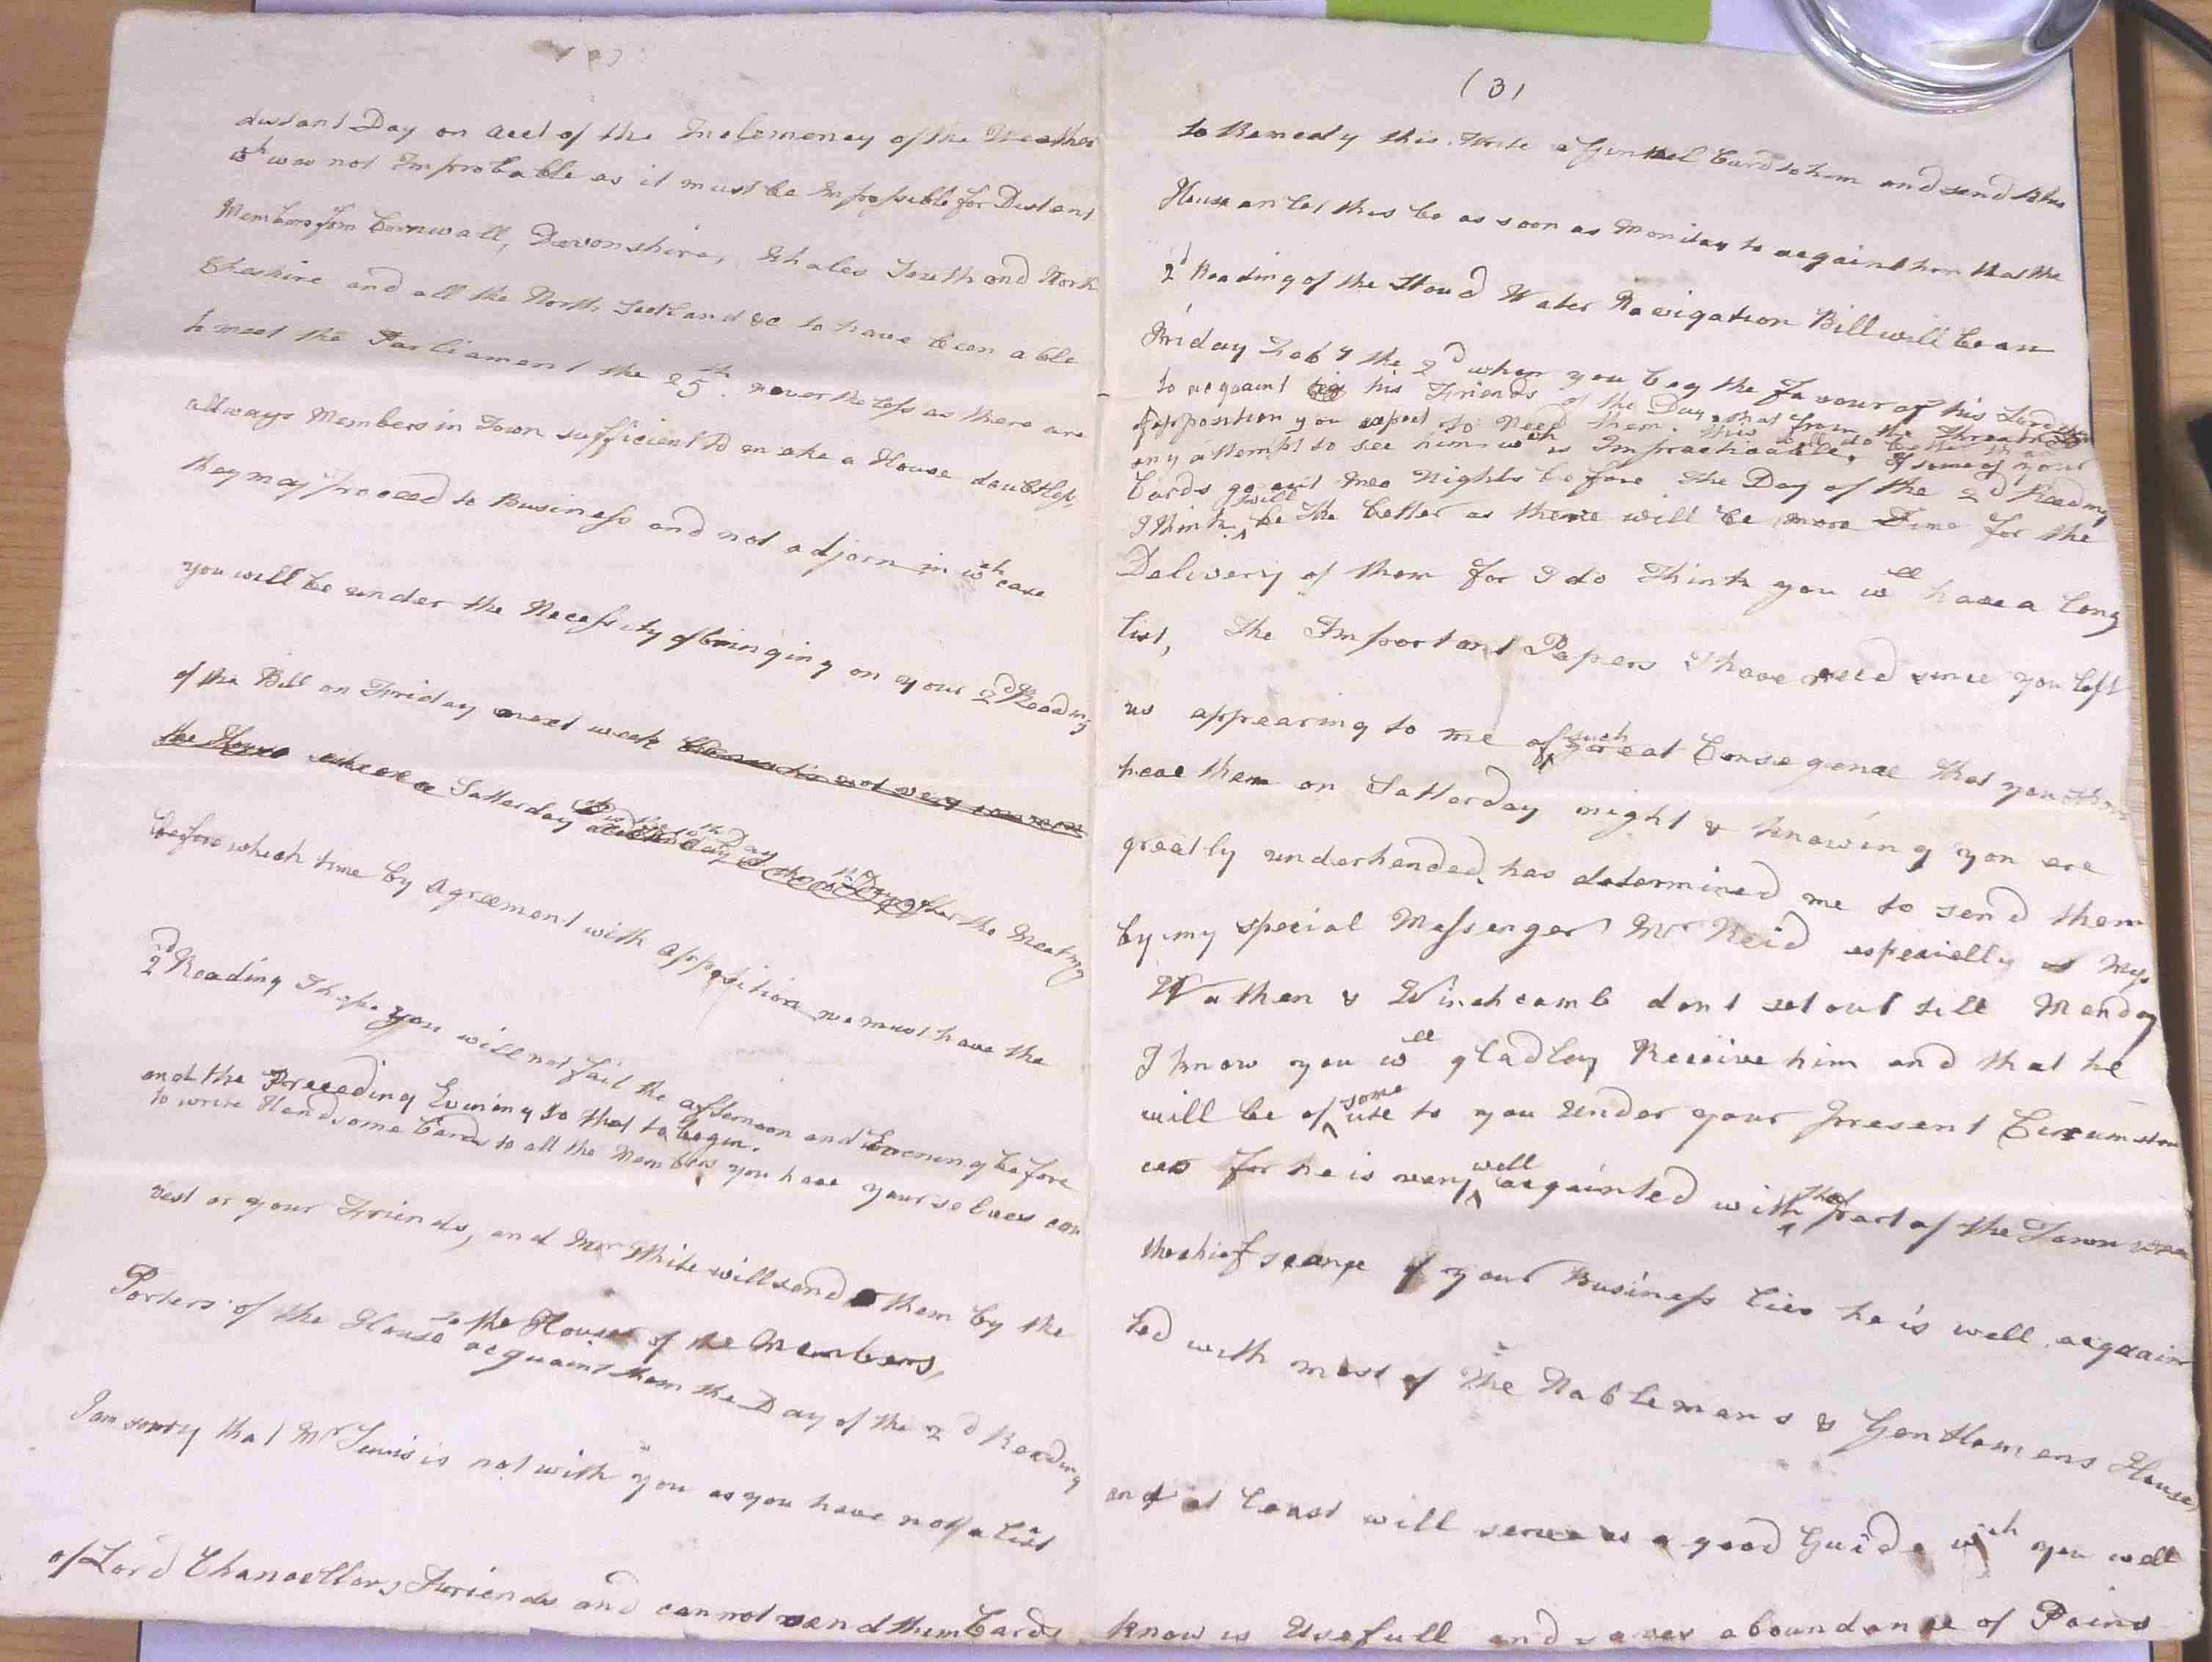 (2)
distant Day on acct of the Inclemency of the Weather
wch was not Improbable as it must be Impossible for Distant
Members from Cornwall, Devonshire, Whales South and North
Cheshire and all the North Scotland &c to have been able
to meet the Parliament the 25th nevertheless as there are
allways Members in Town sufficient to make a House doubtless
they may proceed to Business and not adjorn in wch case
you will be under the Necessity of bringing on your 2d Reading
of the Bill on Friday next week
the House Satterday after the Meeting
before which time by Agreement with opposition we must have the
2d Reading I hope you will not fail the afternoon and Evening before
and the Preceeding Evining to that to begin.
to write Handsome Cards to all the Members you have yourselves can
vest or your Friends, and Mr White will send them by the
Porters of the House to the Houses of the Members,
acquaint them the Day of the 2d Reading
I am sorry that Mr Lewis is not with you as you have not a List
of Lord Chancellors Friends and cannot send them Cards
(3)
to Remedy this. Write a Genteel Card to him and send to his
House an let this be as soon as Monday to acqaint him that the
2d Reading of the Stroud Water Navigation Bill will be on
Friday Feby the 2d when you beg the Favour of his Lordship
to acquaint his Friends of the Day, that from the threatned
opposition you expect to Need them. this will do better than
any attempt to see him wch is Impracticable. If some of your
Cards go out two Nights before the Day of the 2d Reading
I think will be the better as there will be more Time for the
Delivery of them for I do Think you will have a long
list, the Important Papers I have recd since you left
us appearing to me of such great Conseqence that you should
have them on Satterday night & knowing you are
greatly underhanded, has determined me to send them
by my special Messenger Mr Reid especially as Mrss
Wathen & Winchcomb dont set out till Monday
I know you will gladley Receive him and that he
will be of some use to you under your present Circumstan
ces for he is very well acqainted with that part of the Town were
the chief scene of your Business lies he is well acqain
ted with most of the Noblemans & Gentlemens Houses
and at least will serve as a good Guide wch you well
know is Usefull and saves aboundance of Pains